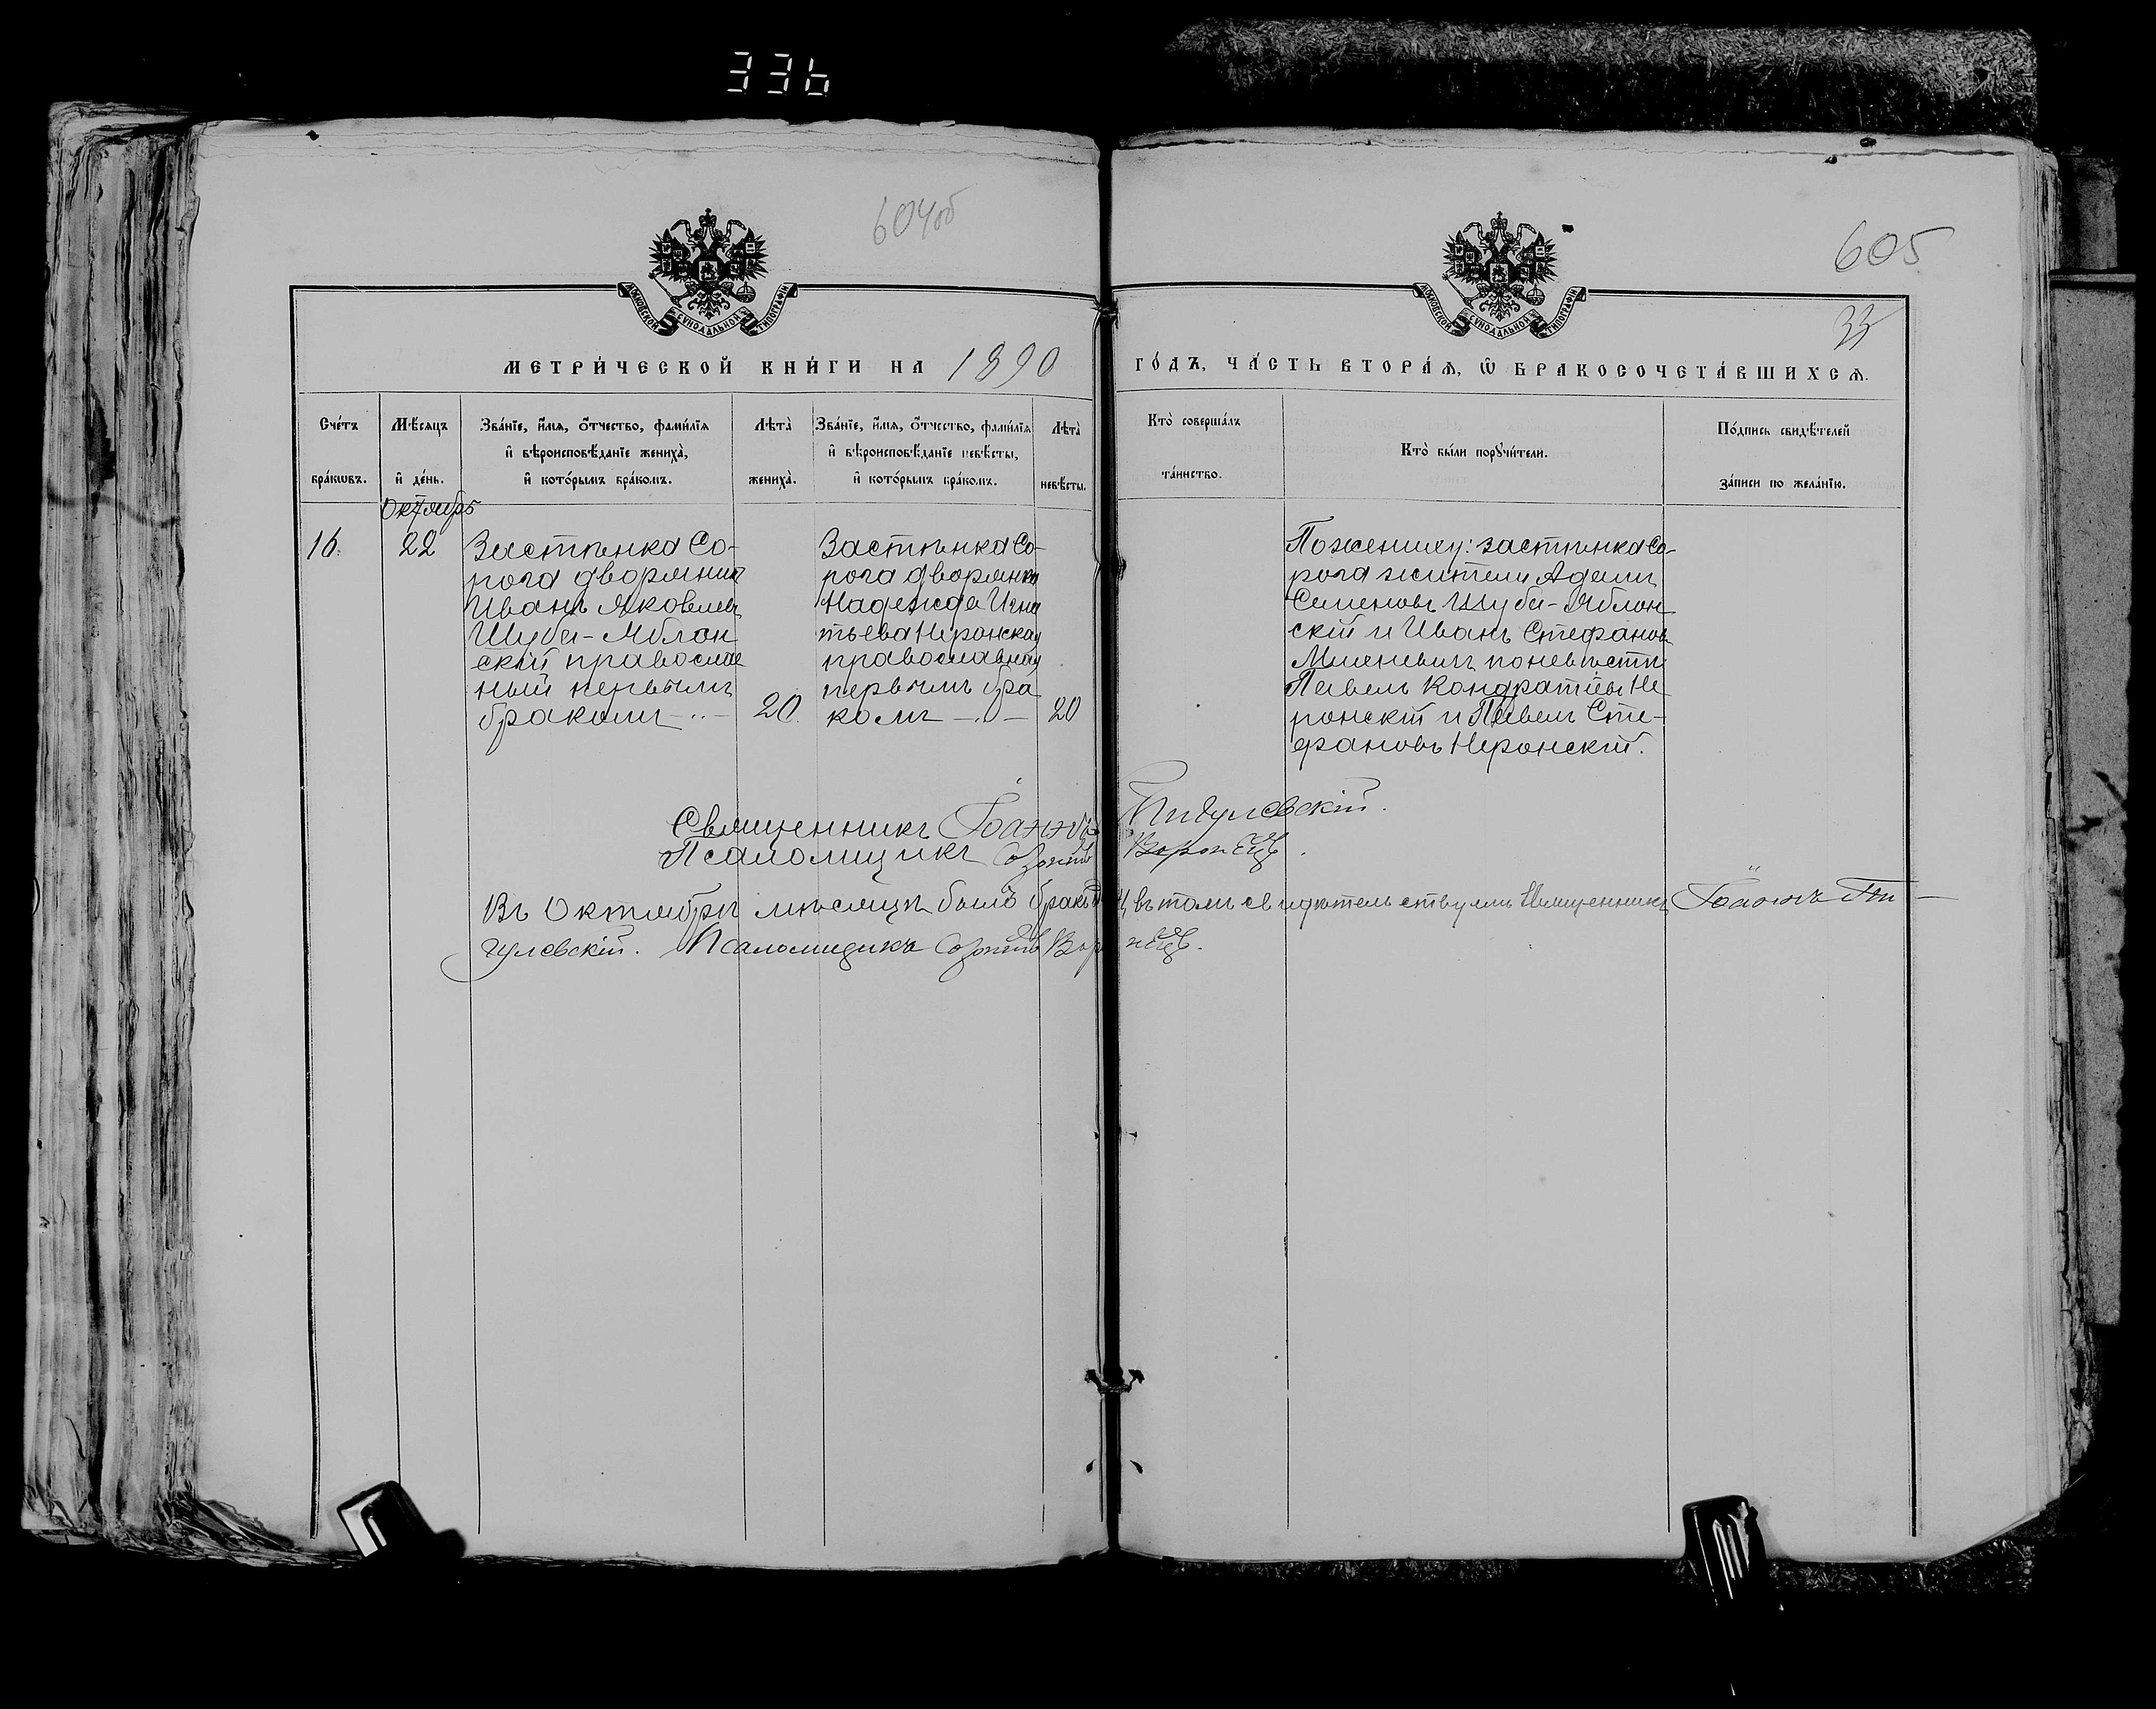 336
604об
605
МОСКОВСКОЙ СѴНОДАЛЬНОЙ ТИПОГРАФІИ
МОСКОВСКОЙ СѴНОДАЛЬНОЙ ТИПОГРАФІИ
33
МЕТРИ́ЧЕСКОЙ КНИ́ГИ НА 1890
ГО́ДЪ, ЧА́СТЬ ВТОРА́Ѧ, Ѽ БРАКОСОЧЕТА́ВШИХСѦ.
Сче́тъ
бра́кѡвъ.
Мѣ́сяцъ
и де́нь.
Зва́нїе, и́мя, о́тчество, фами́лїя
и вѣроисповѣ́данїе жениха̀,
и кото́рымъ бра́комъ.
Лѣта̀
жениха̀.
Зва́нїе, и́мя, о́тчество, фами́лїя
и вѣроисповѣ́данїе невѣ́сты,
и кото́рымъ бра́комъ.
Лѣта̀
невѣ́сты.
Кто̀ соверша́лъ
та́инство.
Кто̀ бы́ли порꙋчи́тели.
По́дпись свидѣ́телей
за́писи по жела́нїю.
Октябрь
16.
22
Застѣнка Со-
рога дворянинъ
Иванъ Яковлевъ
Шуба-Яблон
скій православ
ный первымъ
бракомъ
20.
Застѣнка Со-
рога дворянка
Надежда Игна
тьева Неронская
православная
первымъ бра
комъ
20
По женихѣ: застѣнка Со-
рога жители Адамъ
Семеновъ Шуба-Яблон
скій и Иванъ Стефановъ
по невѣстѣ:
Павелъ Кондратіевъ Не
ронскій и Павелъ Сте-
фановъ Неронскій.
Священникъ Іоаннъ Пигулевскій.
Псаломщикъ Воронецъ.
Въ Октябрѣ мѣсяцѣ былъ бракъ въ томъ свидѣтельствуемъ Священникъ Іоаннъ Пи-
гулевскій. Псаломщикъ Воронецъ.